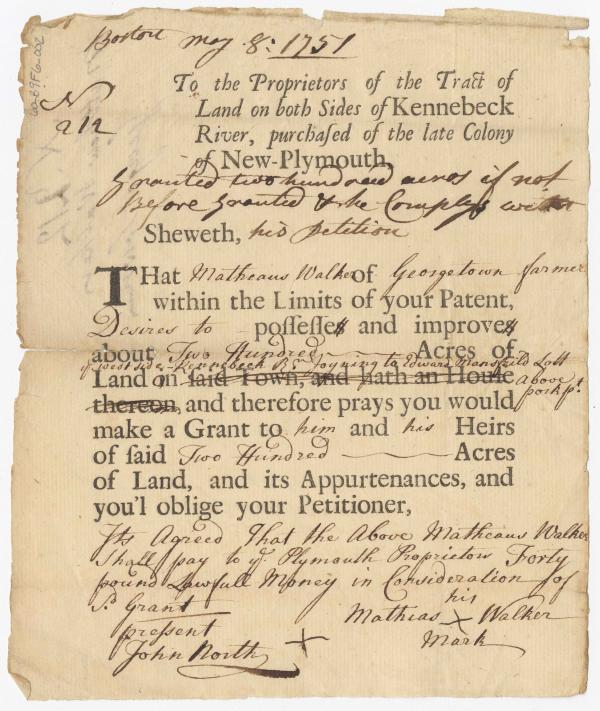 Boston may 8: 1751
No
212
To the Proprietors of the Tract of
Land on both Sides of Kennebeck
River, purchaſed of the late Colony
of New-Plymouth,
Granted two hundred acres if not
Before Granted & he Complys with
Sheweth, his Petition
THat Matheaus Walker of Georgetown farmer
within the Limits of your Patent,
Desires to poſſeſſes and improves
about Two Hundred Acres of
of west side Kennebeck Rr. Joyning to Edward Lott
Land in ſaid Town, and hath an Houſe above
thereon, and therefore prays you would pork pt.
make a Grant to him and his Heirs
of ſaid Two Hundred Acres
of Land, and its Appurtenances, and
you'l oblige your Petitioner,
Its Agreed That the Above Matheaus Walker
Shall pay to ye. Plymouth Proprietors Forty
pound Lawfull Money in Consideration of
Sd. Grant
his
Mathias X Walker
Mark
pressent
John North